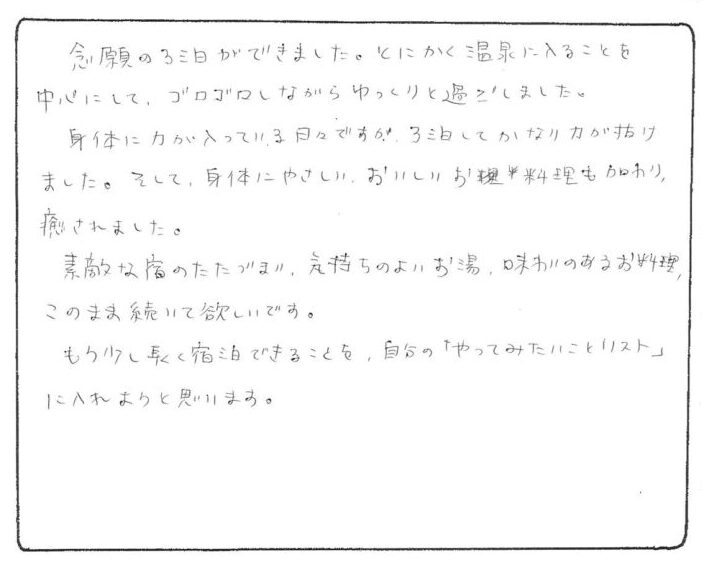 念願の3泊ができました。とにかく温泉に入ることを
中心にして、ゴロゴロしながらゆっくりと過ごしました。
身体に力が入っている日々ですが、3泊してかなり力が抜け
ました。そして、身体にやさしい、おいしいお料理も加わり、
癒されました。
素敵な宿のたたづまい、気持ちのよいお湯、味わいのあるお料理、
このまま続いて欲しいです。
もう少し長く宿泊できることを、自分の「やってみたいことリスト」
に入れようと思います。